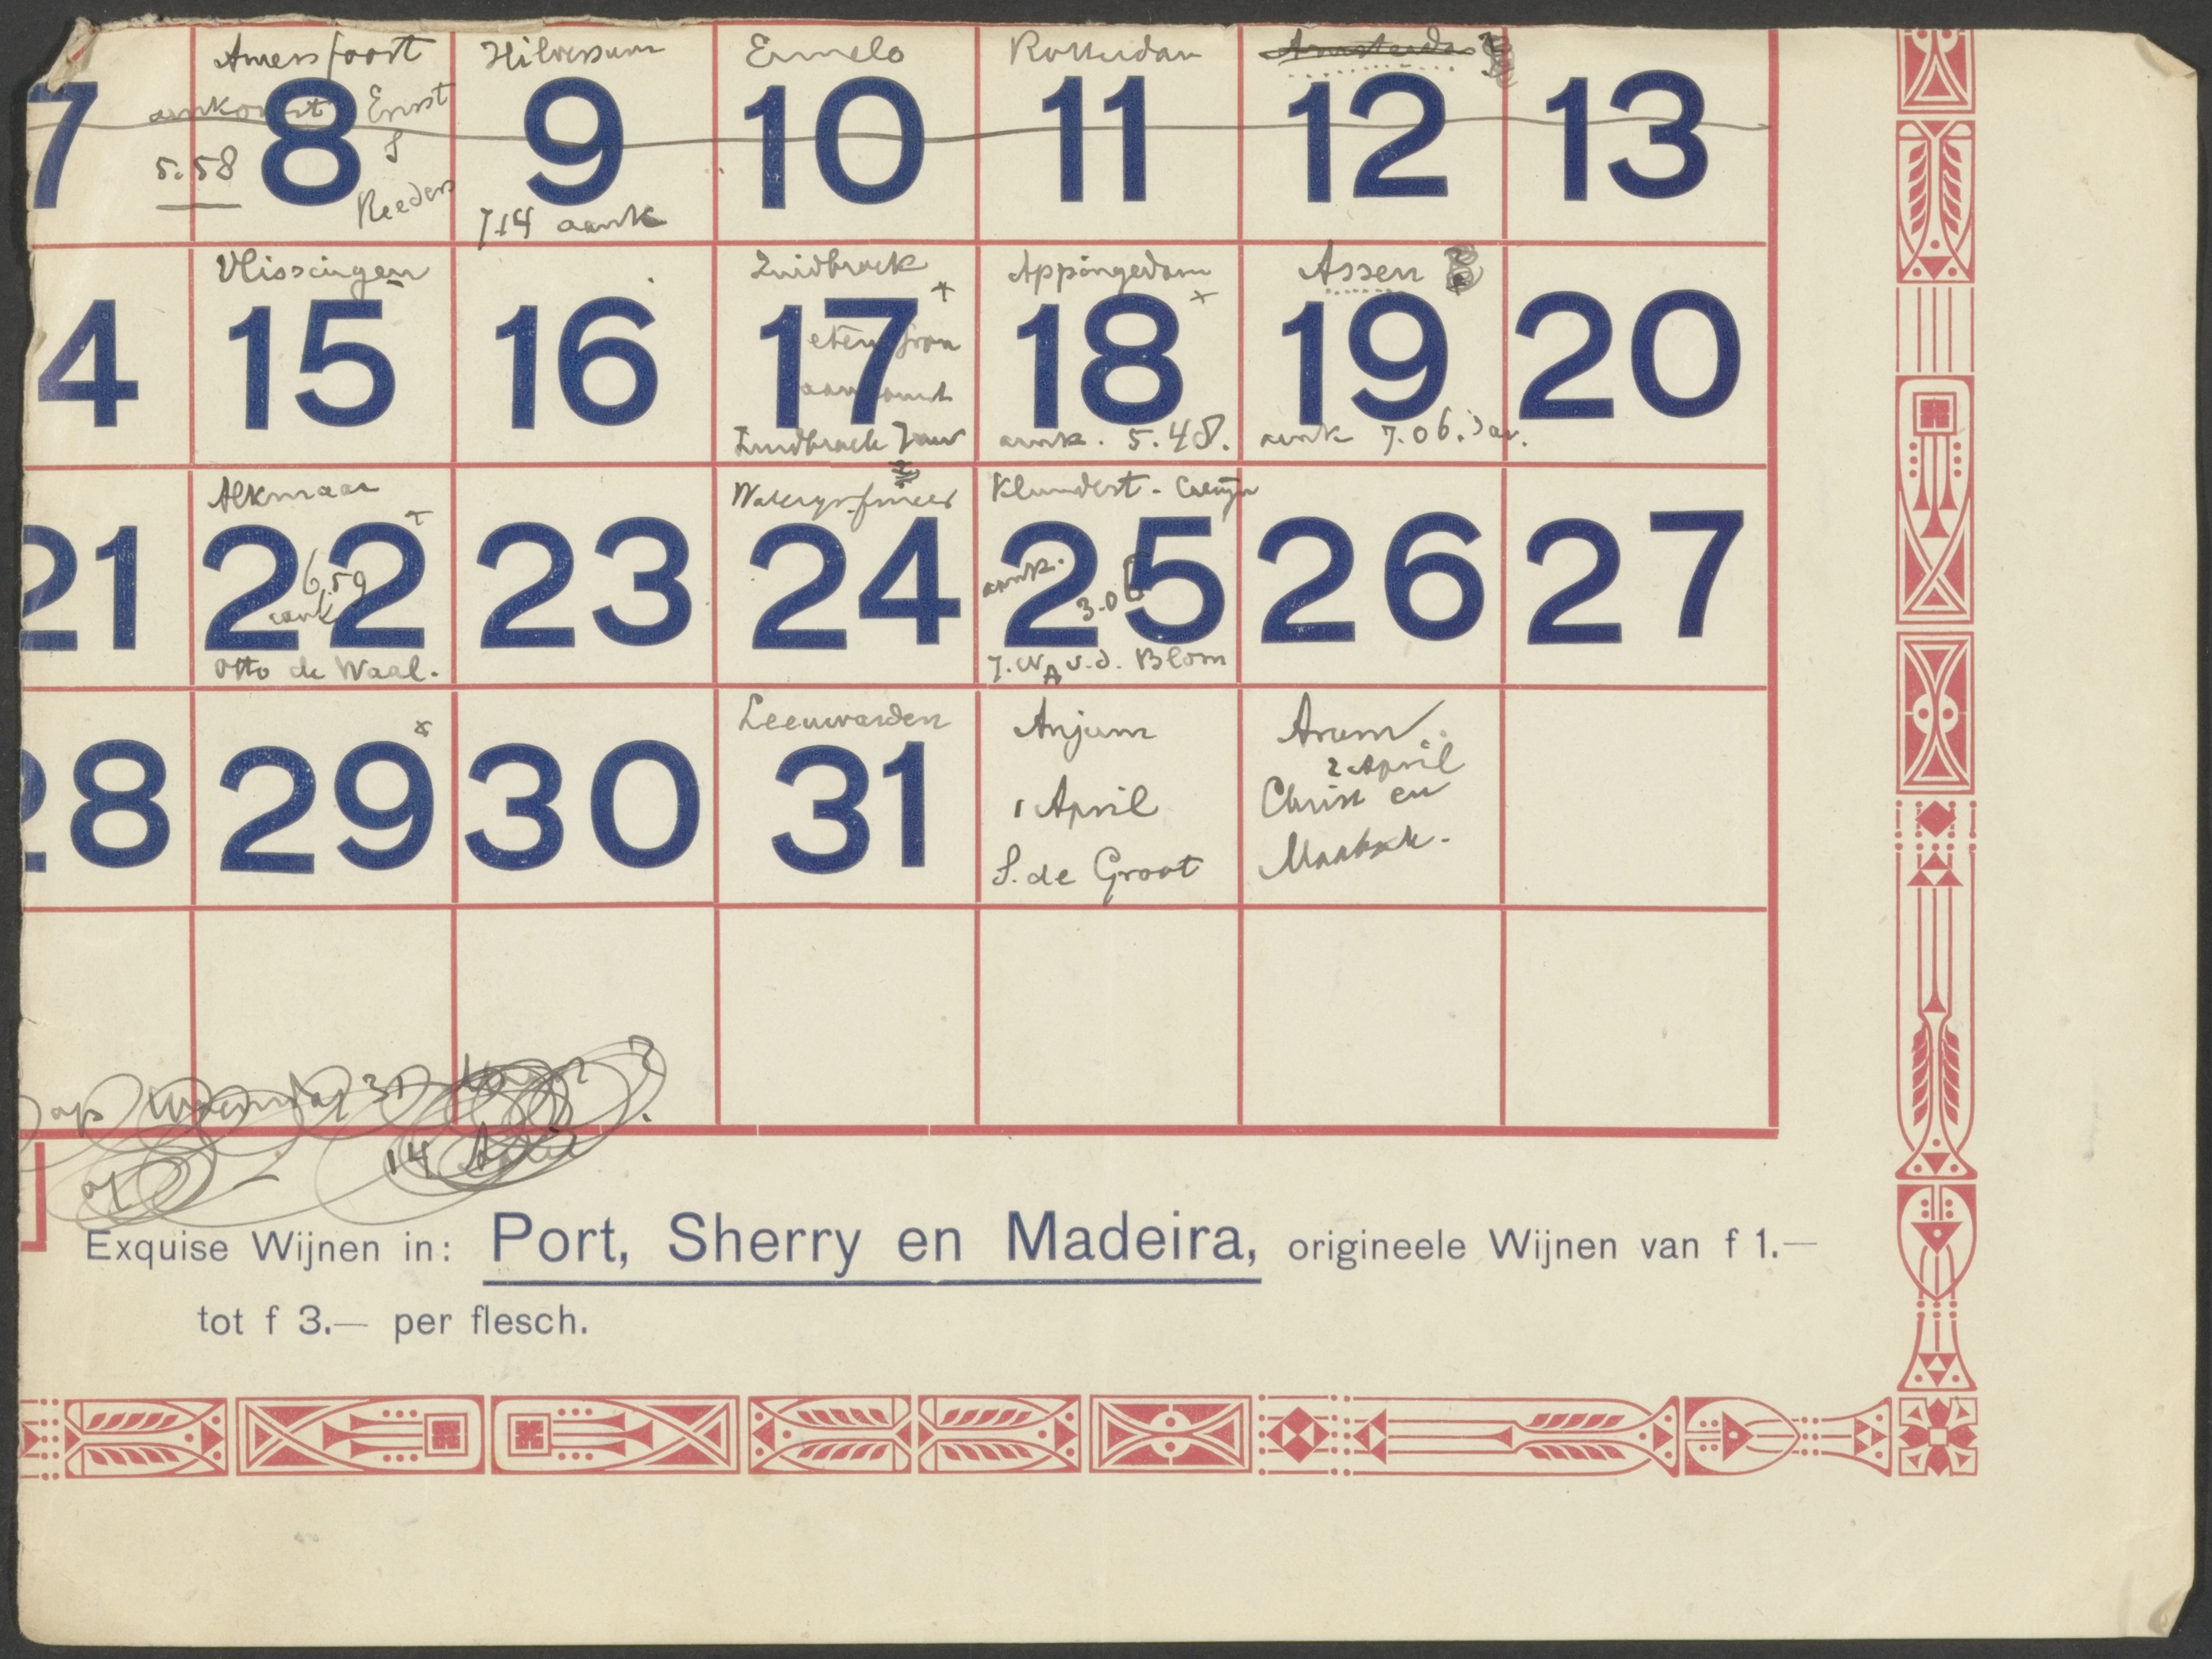 Amersfoort Hilversum Ermelo Rotterdam Amsterdam
7 8 9 10 11 12 13
aankomst Ernst
5.58
Reeders
7.14 aank
Vlissingen Zuidbroek Appingedam Assen
4 15 16 17 18 19 20
eten
Zuidbroek aank. 5.48. aank 7.06.
Alkmaar Klundert -
21 22 23 24 25 26 27
6.59
aank
aank.
3.06
Otto de Waal. v.d. Blom
Leeuwarden Anjum Arum
28 29 30 31
1 April
S. de Groot
2 April
Christ en
op woensdag 31
of 14 April
Exquise Wijnen in: Port, Sherry en Madeira, origineele Wijnen van f 1.—
tot f 3.— per flesch.